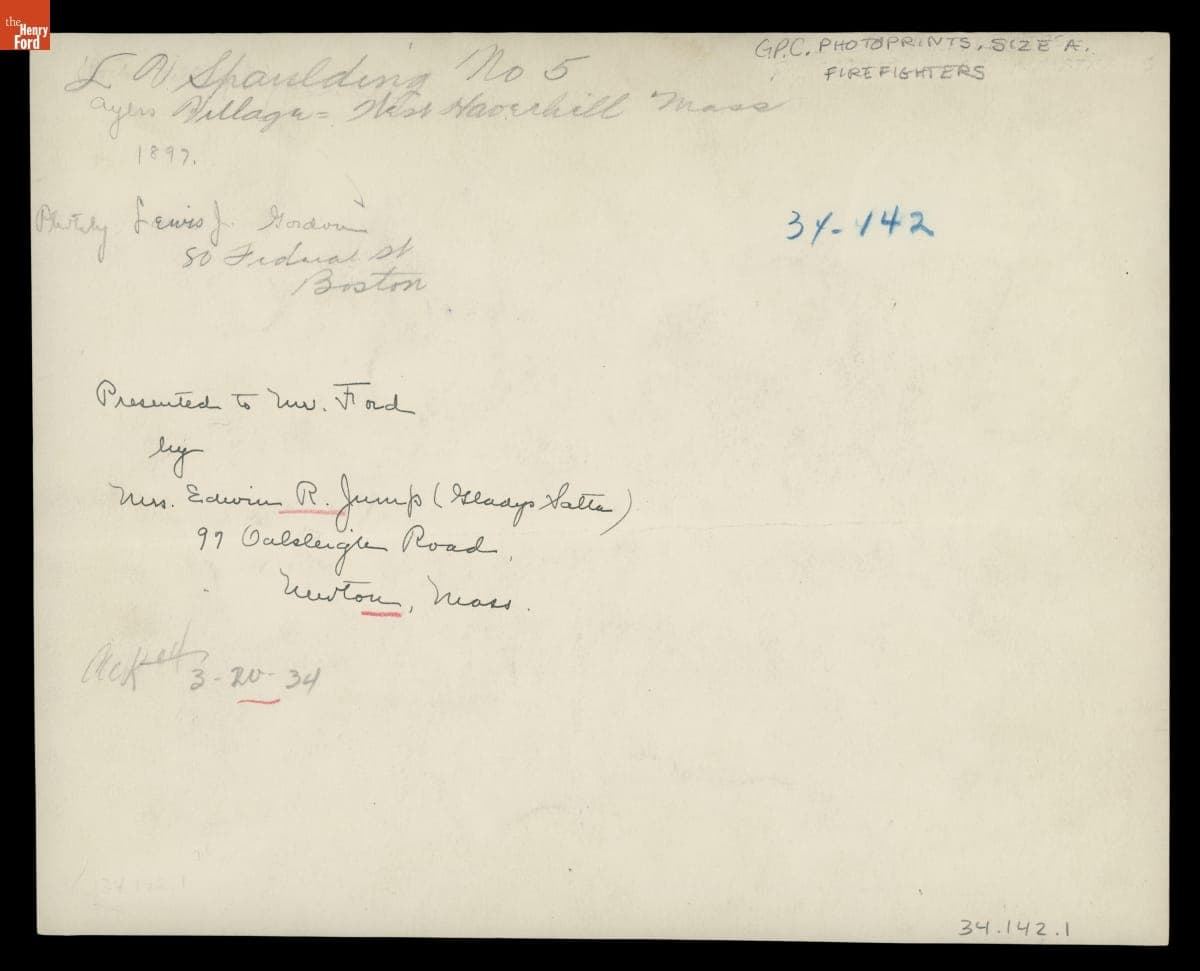 the
Henry
Ford
G.P.C. PHOTOPRINTS, SIZE A.
FIREFIGHTERS
Spaulding No 5
Ayers Village = West Haverhill Mass
1897.
Photo by Lewis J. Gordon
80 Federal St
Boston
34-142
Presented to Mr. Ford
by
Mrs. Edwin R. Jump (Gladys
97 Oakleigh Road,
Newton, Mass.
3-20-34
34.142.1
34.142.1